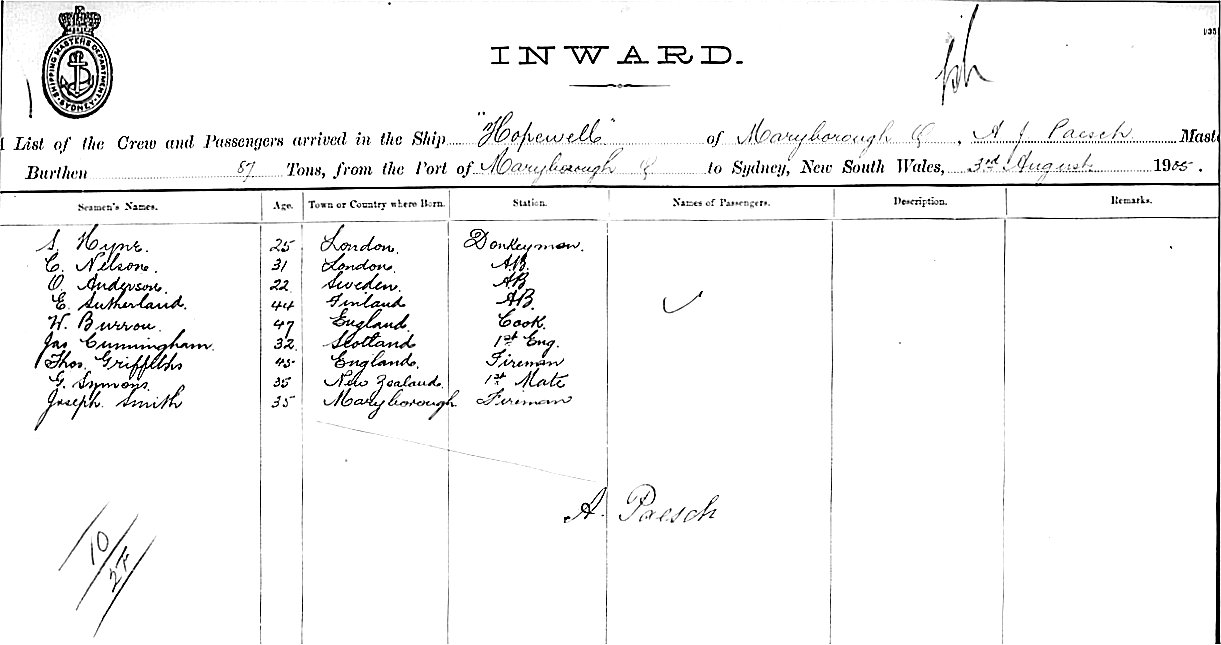 SHIPPING MASTERS DEPARTMENT. SYDNEY.
INWARD.
135
List of the Crew and Passengers arrived in the Ship "Hopewell" of Maryborough Q, A J Paesch Maste
Burthen 87 Tons, from the Port of Maryborough Q to Sydney, New South Wales, 3rd August 1905.
Seamen's Names. Age. Town or Country where Born. Station. Names of Passengers. Description. Remarks.
S. Hyne. 25 London. Donkeyman.
C. Nelson. 31 London. AB.
O. Anderson. 22 Sweden. AB
E. Sutherland. 44 Finland AB.
W. Burrou. 47 England. Cook.
Jas Cunningham. 32 Scotland 1st Eng.
Thos. Griffiths 45 England. Fireman
G. Symons. 35 New Zealand. 1st Mate
Joseph Smith 35 Maryborough. Fireman
A. Paesch
10